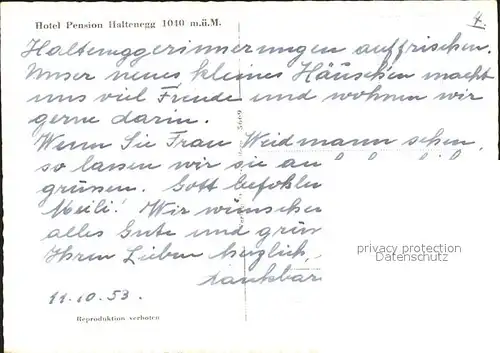 Hotel Pension Haltenegg 1040 m.ü.M.
4.
Halteneggerinnerungen auffrischen.
Unser neues kleines Häuschen macht
uns viel Freude und wohnen wir
gerne darin.
Wenn Sie Frau Weidmann sehen,
so lassen wir sie
grüssen. Gott befohlen
Meili! Wir wünschen
alles Gute und grüs
Ihren Lieben herzlich,
dankbar
11.10.53.
Reproduktion verboten
privacy protection
Datenschutz